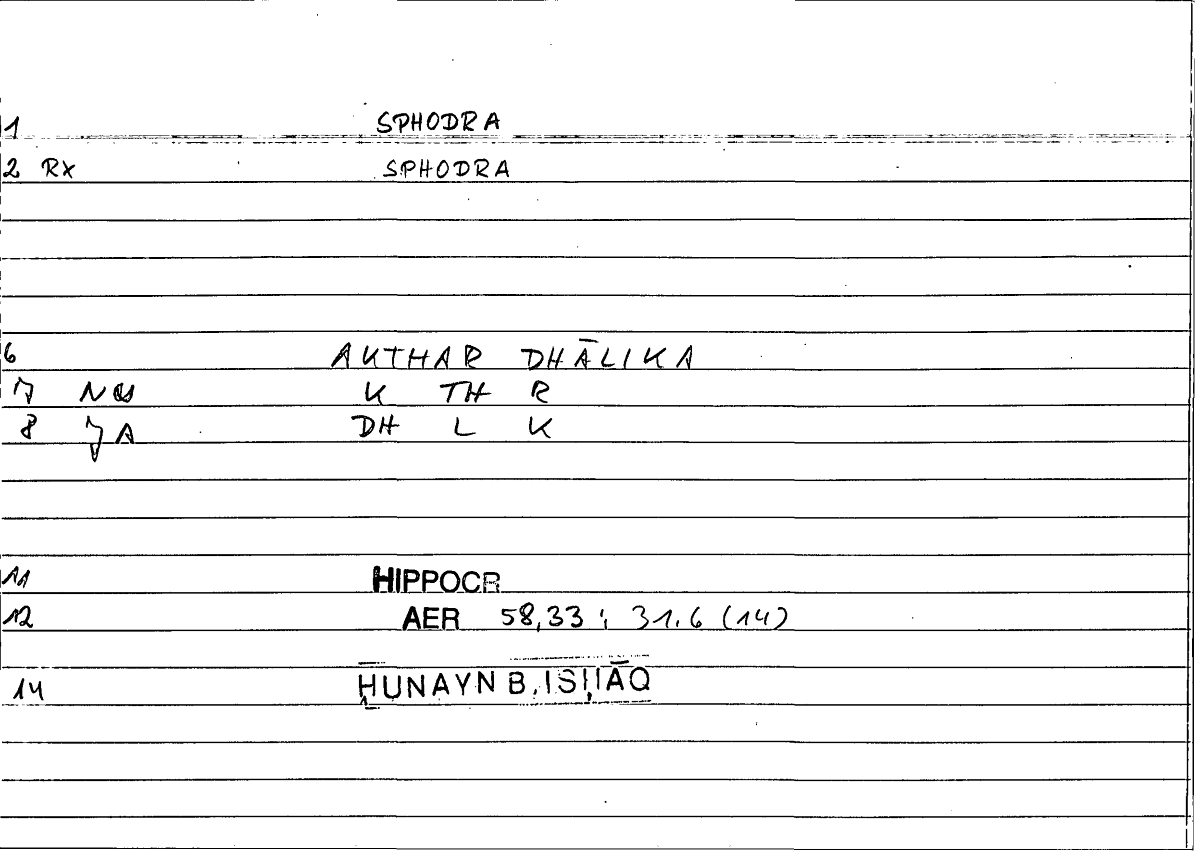 1 SPHODRA
2 RX SPHODRA
6 AKTHAR DHĀLIKA
7 K TH R
8 JA DH L K
11 HIPPOCR
12 AER 58,33 ; 31.6 (14)
14 ḤUNAYN B. ISḤĀQ